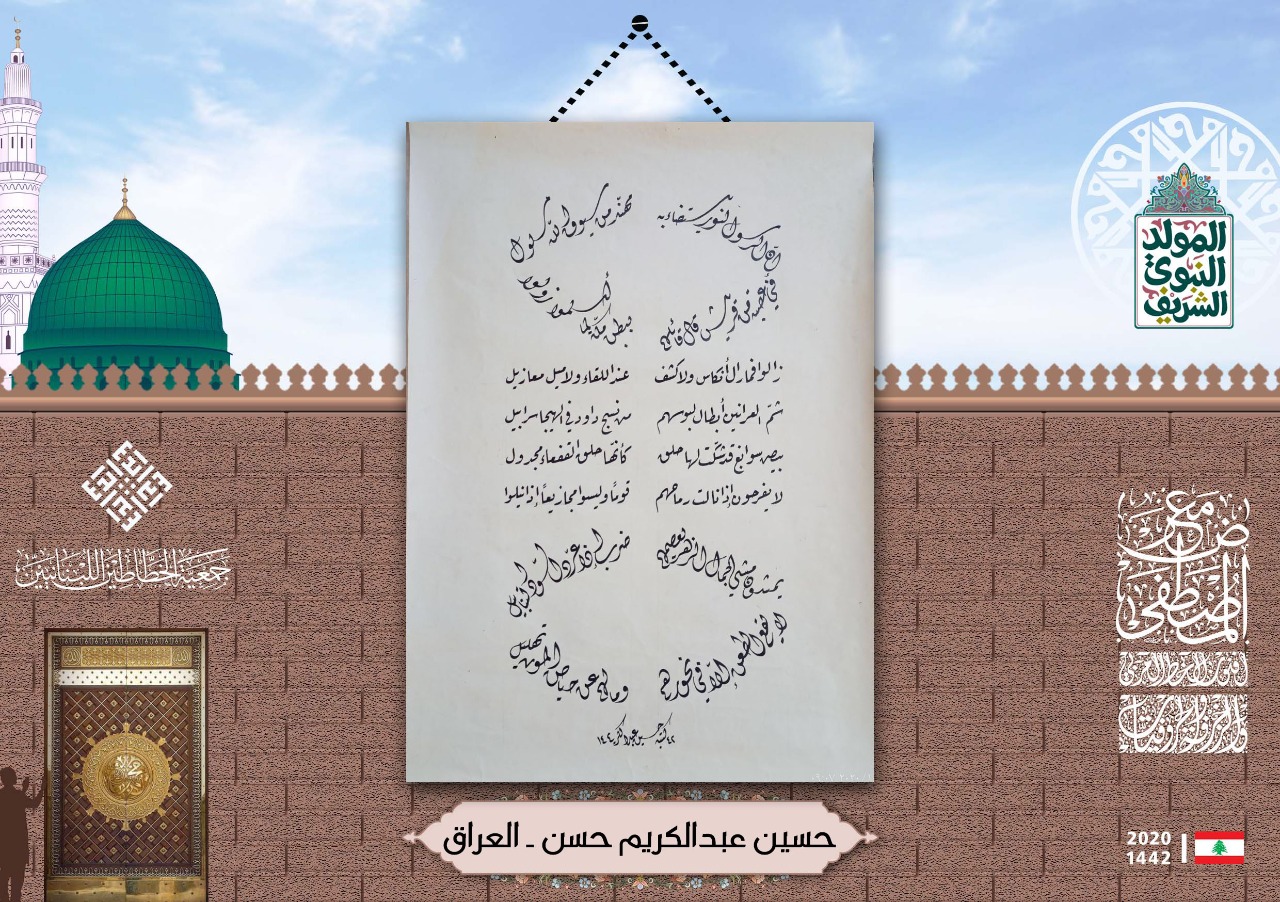 المولد
النبوي
الشريف
إن الرسول لنور يستضاء به مهنّد من سيوف الله مسلول
في عصبة من قريش قال قائلهم ببطن مكة لما أسلموا زولوا
زالوا فما زال أنكاس ولا كشف عند اللقاء ولا ميل معازيل
شمّ العرانين أبطال لبوسهم من نسج داود في الهيجا سرابيل
بيض سوابغ قد شكّت لها حلق كأنها حلق القفعاء مجدول
لا يفرحون إذا نالت رماحهم قوماً وليسوا مجازيعاً إذا نيلوا
يمشون مشي الجمال الزهر يعصمهم ضرب إذا عرد السود التنابيل
لا يقع الطعن إلا في نحورهم وما لهم عن حياض الموت تهليل
كتبه حسين عبدالكريم
جمعية الخطاطين اللبنانيين
معرض
المصطفى
لفنون الخط العربي
والزخرفة والحروفيات
حسين عبدالكريم حسن ـ العراق
2020
1442